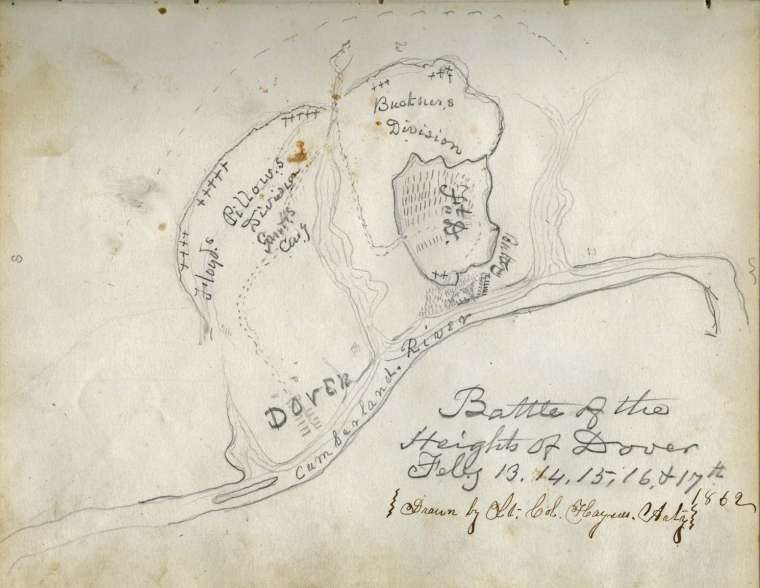 Buckner,s
Division
Pillow,s
Division
Cav,y
Floyd,s
DOVER
Cumberland. River
Battle of the
Heights of Dover
Feb,y 13. 14. 15, 16, & 17th
1862
{ Drawn by Lt. Col. Haynes. Art,y }